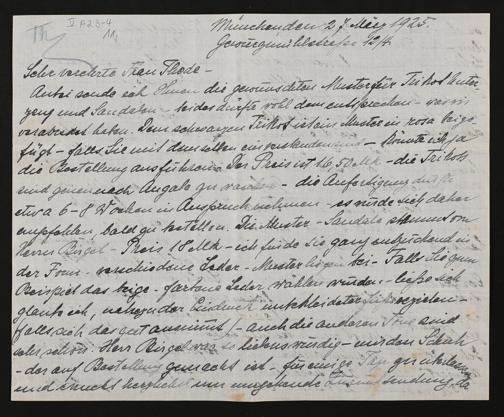 Th
V A23-4
11
München den 27. März 1925.
Gewürzmühlstraße 12/4
Sehr verehrte Frau Thode –
Anbei sende ich Ihnen die gewünschten Muster für Trikot Unter
zeug und Sandalen – beides dürfte wohl dem entsprechen – was wir
verabredet haben. Dem schwarzen Trikot ist ein Muster in rosa beige
fügt – falls Sie mit demselben einverstanden – könnte ich ja
die Bestellung ausführen. Der Preis ist 16,50 Mk – die Trikots
sind genau nach Angabe zu – die Anfertigung dürfte
etwa 6-8 Wochen in Anspruch nehmen – es würde sich daher
empfehlen, bald zu bestellen. Die Muster – Sandale stammt von
Herrn Birgel – Preis 18 Mk – ich finde sie ganz entzückend in
der Form – verschiedene Leder – Muster liegen bei – Falls Sie zum
Beispiel das beige – farbene Leder wählen würden – ließe sich
glaube ich, der Eindruck erzielen –
falls sich das gut ausnimmt, – auch die anderen Töne sind
sehr schön. Herr Birgel war so liebenswürdig – mir den Schuh
– der auf Bestellung gemacht ist – für einige Tage zu überlassen
und ersucht herzlichst um umgehende Zurücksendung, da